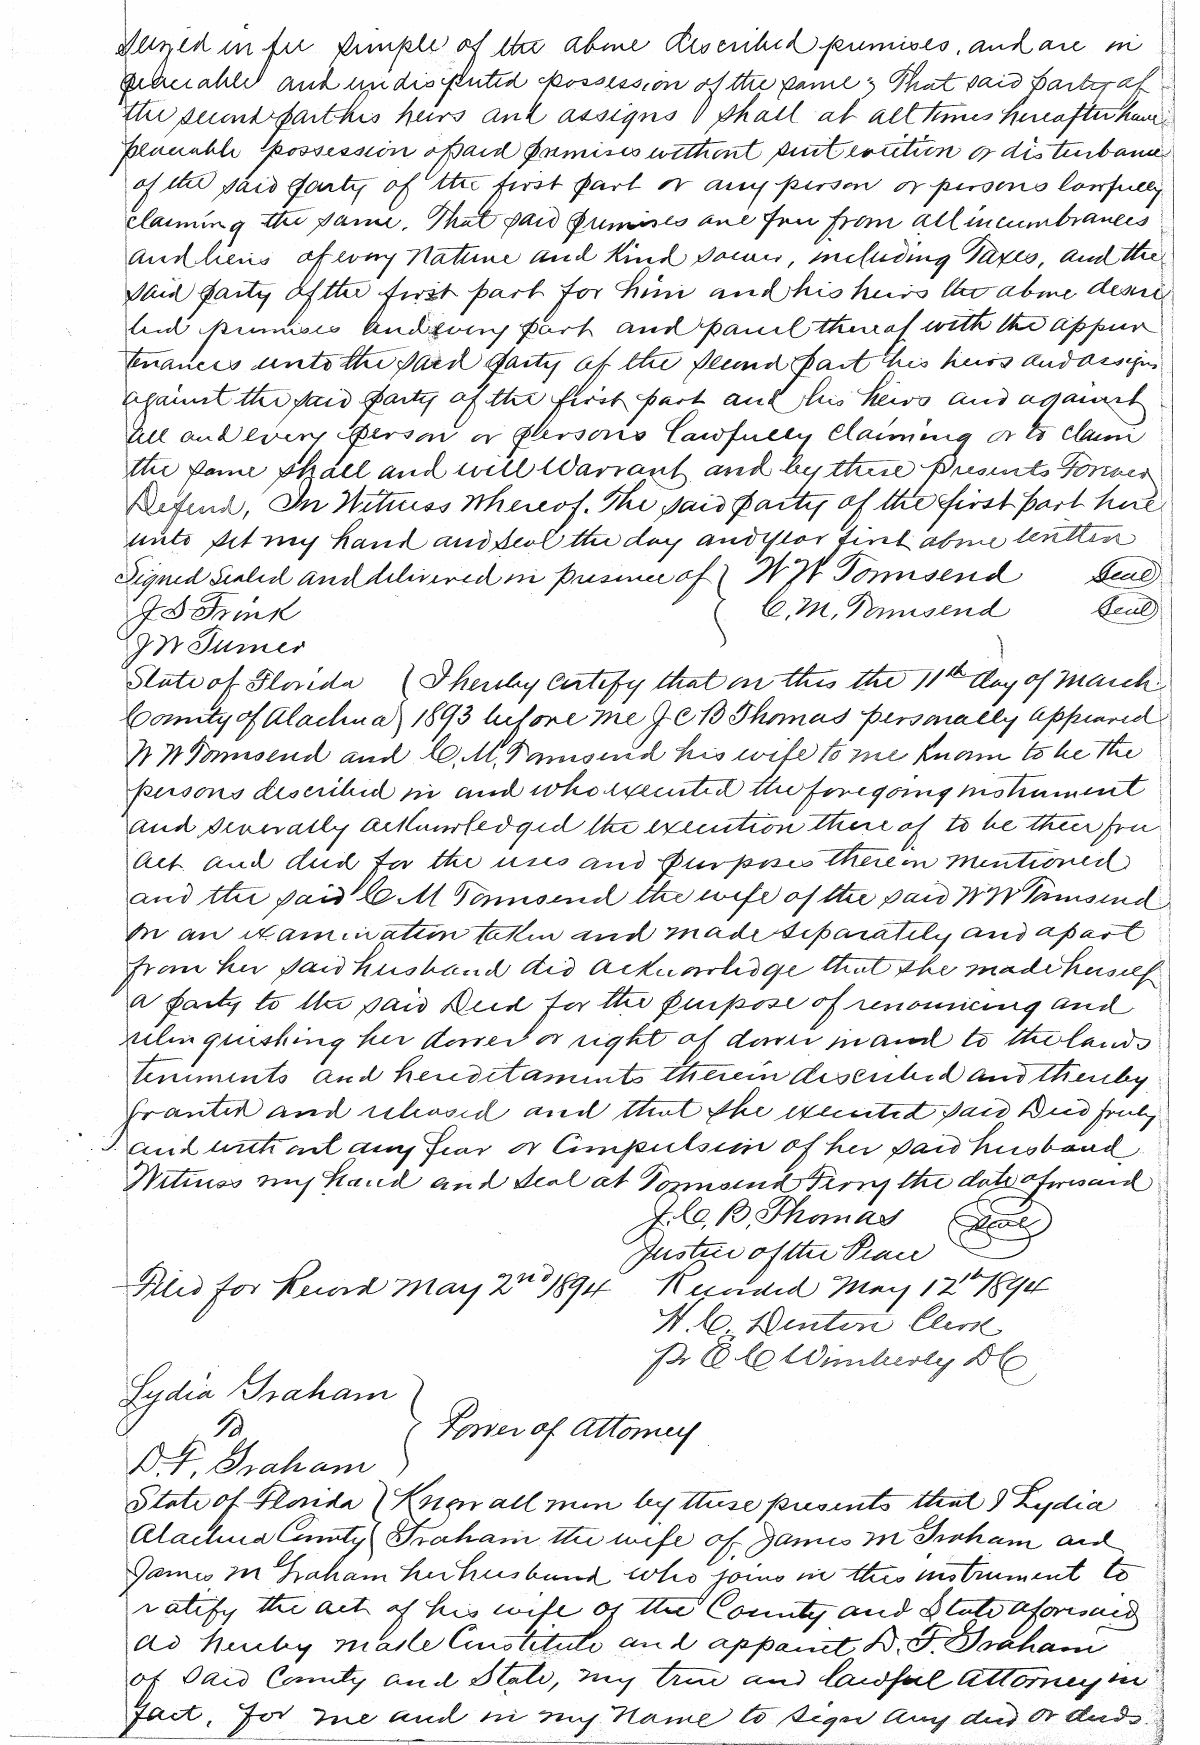 Seized in fee simple of the above described premises, and are in
peaceable and undisputed possession of the same; That said party of
the second part his heirs and assigns shall at all times hereafter have
peaceable possession of said premises without suit eviction or disturbance
of the said party of the first part or any person or persons lawfully
claiming the same. That said premises are free from all incumbrances
and liens of every Nature and Kind soever, including Taxes, and the
said party of the first part for him and his heirs the above descri
bed premises and every part and parcel thereof with the appur
tenances unto the said party of the second part his heirs and assigns
against the said party of the first part and his heirs and against
all and every person or persons lawfully claiming or to claim
the same shall and will Warrant and by these presents Forever
Defend, In Witness Whereof. The said party of the first part here
unto set my hand and seal the day and year first above written
Signed Sealed and delivered in presence of { W W Townsend Seal
J S Frink { C. M. Townsend Seal
J W Turner
State of Florida ( I hereby certify that on this the 11th day of March
County of Alachua ) 1893 before me J C B Thomas personally appeared
W W Townsend and C. M. Townsend his wife to me known to be the
persons described in and who executed the foregoing instrument
and severally acknowledged the execution there of to be their free
act and deed for the uses and purposes therein mentioned
and the said C M Townsend the wife of the said W W Townsend
on an examination taken and made separately and apart
from her said husband did acknowledge that she made herself
a party to the said Deed for the purpose of renouncing and
relinquishing her dower or right of dower in and to the lands
teniments and hereditaments therein described and thereby
granted and released and that she executed said Deed freely
and without any fear or Compulsion of her said husband
Witness my hand and seal at Townsend Ferry the date aforesaid
J. C. B. Thomas Seal
Justice of the Peace
Filed for Record May 2nd 1894 Recorded May 12th 1894
H. C. Denton Clerk
Pr E C Wimberly D C
Lydia Graham }
To { Power of Attorney
D. F. Graham )
State of Florida ( Know all men by these presents that I Lydia
Alachua County ( Graham the wife of James M Graham and
James M Graham her husband who joins in this instrument to
ratify the act of his wife of the County and State aforesaid
do hereby made Constitute and appoint D. F. Graham
of said County and State, my true and lawful Attorney in
fact, for me and in my name to sign any deed or deeds